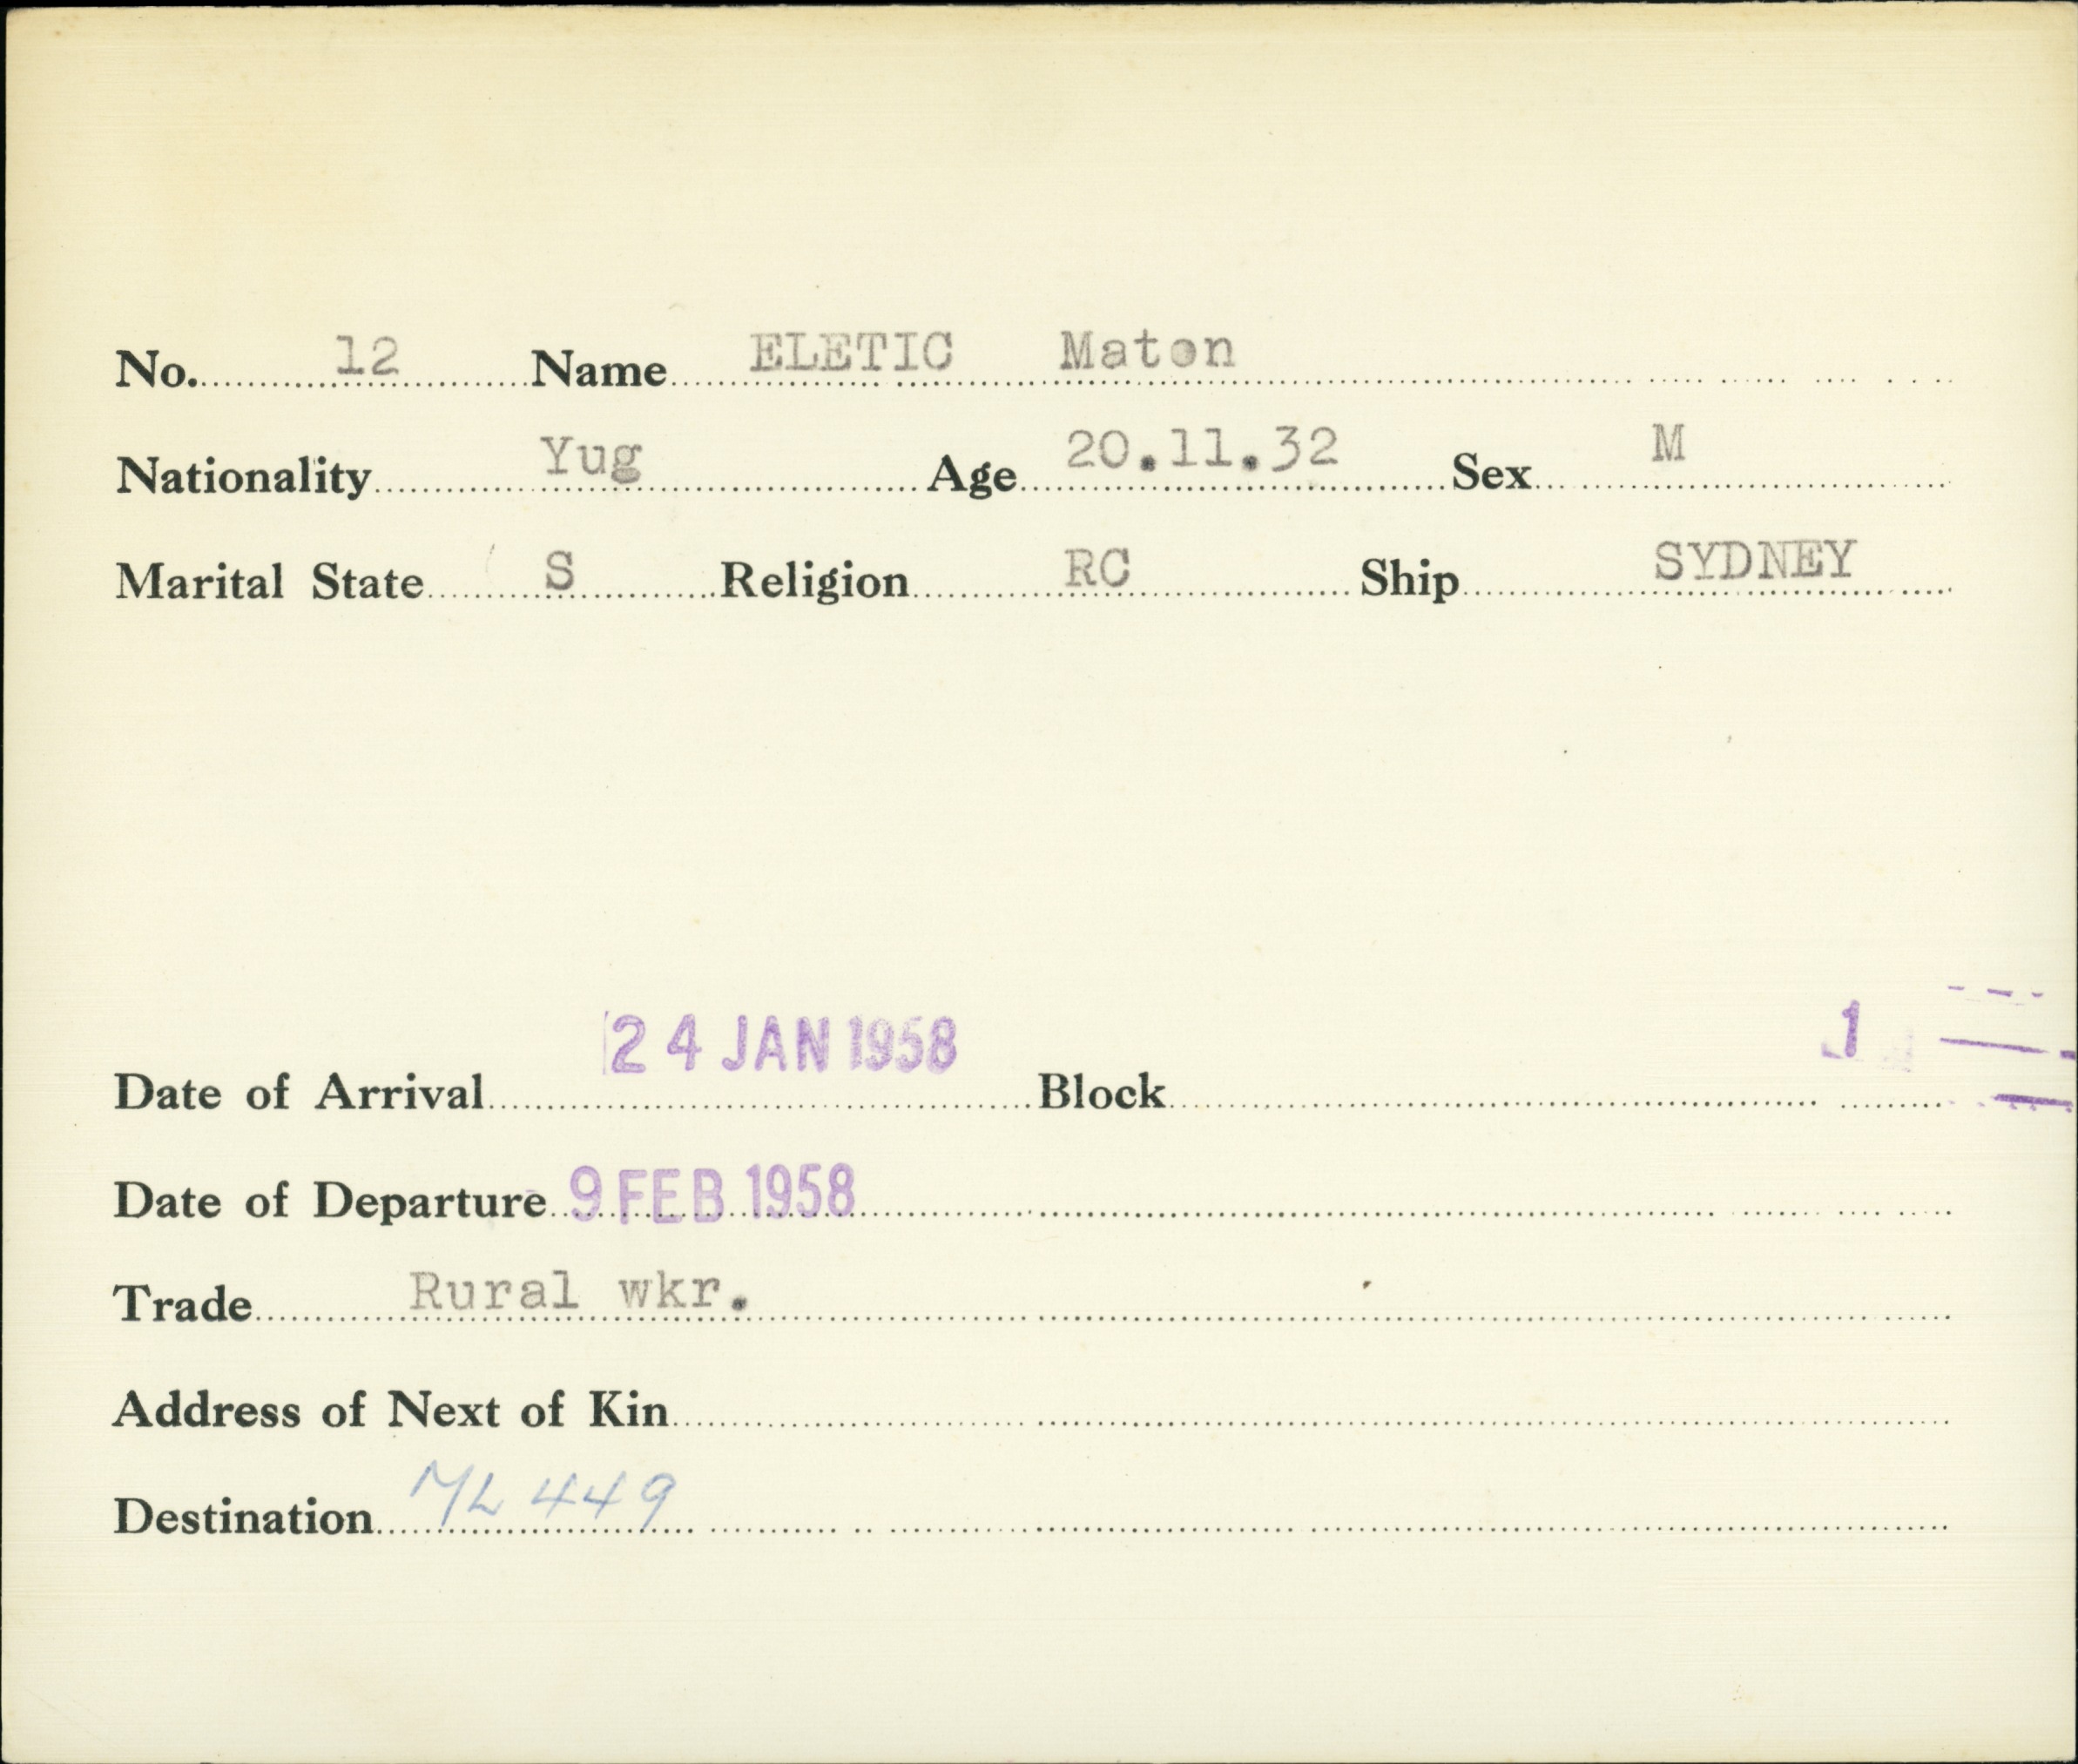 No. 12 Name ELETIC Maton
Nationality Yug Age 20.11.32 Sex M
Marital State S Religion RC Ship SYDNEY
24 JAN 1958 1
Date of Arrival Block
Date of Departure 9 FEB 1958
Trade Rural wkr.
Address of Next of Kin
Destination ML 449